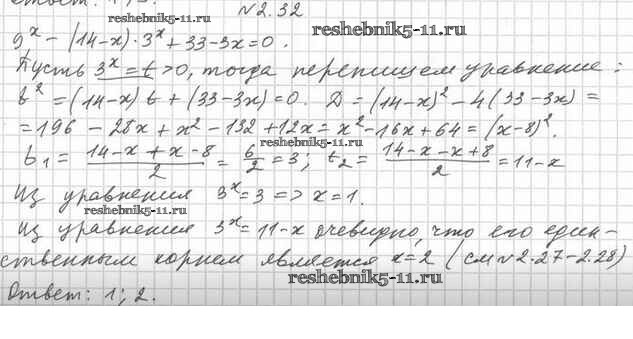 ответ: 1; 3.
№2.32
reshebnik5-11.ru
reshebnik5-11.ru
9^x - (14-x)·3^x + 33-3x=0.
Пусть 3^x = t >0, тогда перепишем уравнение:
t^2 =(14-x)t + (33-3x)=0. D = (14-x)^2 - 4(33-3x) =
=196 - 28x + x^2 - 132 +12x = x^2 -16x + 64 = (x-8)^2.
reshebnik5-11.ru
t_1 = (14-x+x-8)/2 = 6/2 = 3; t_2 = (14-x-x+8)/2 = 11-x
Из уравнения 3^x = 3 => x = 1.
reshebnik5-11.ru
Из уравнения 3^x = 11-x очевидно, что его един-
ственным корнем является x=2 (см №2.27-2.28)
reshebnik5-11.ru
Ответ: 1; 2.